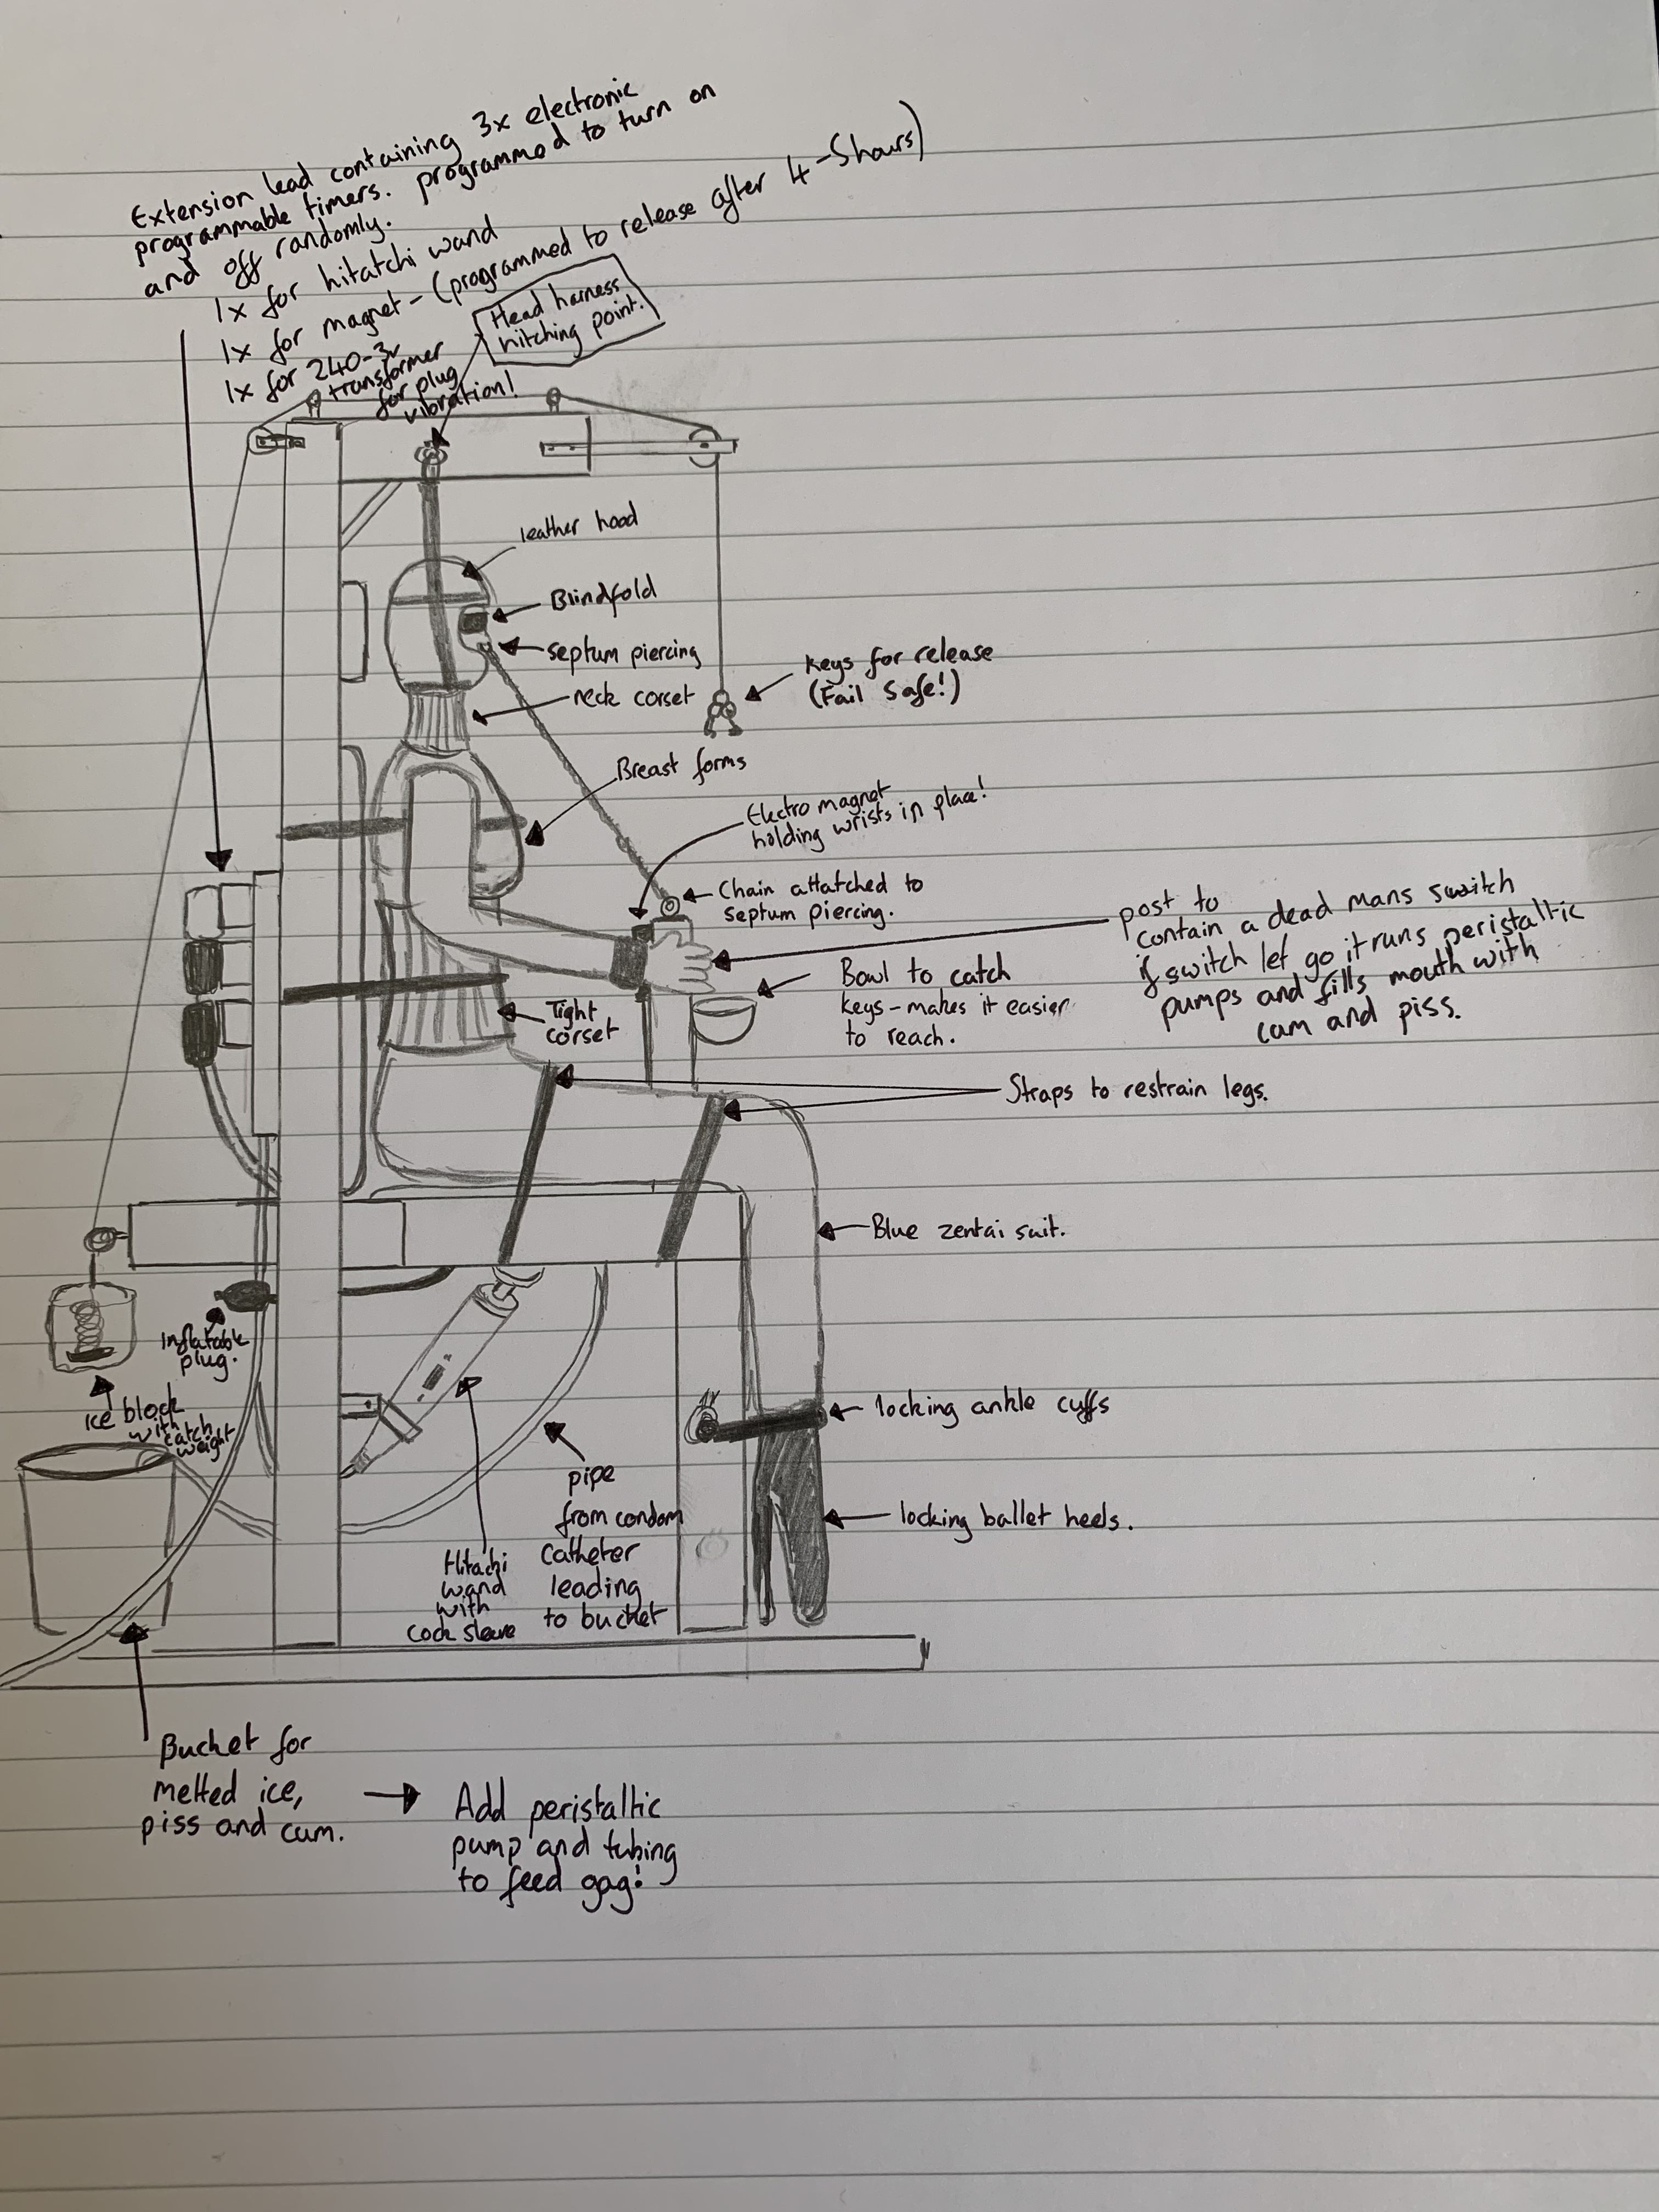 Extension lead containing 3x electronic
programmable timers. programmed to turn on
and off randomly.
1x for hitatchi wand
1x for magnet - (programmed to release after 4-5hours)
1x for 240-3v
transformer
for plug
vibration!
Head harness
hitching point.
leather hood
Blindfold
septum piercing
neck corset
keys for release
(Fail safe!)
Breast forms
Electro magnet
holding wrists in place!
Chain attatched to
septum piercing.
post to
contain a dead mans switch
if switch let go it runs peristaltic
pumps and fills mouth with
cum and piss.
Bowl to catch
keys - makes it easier
to reach.
Tight
corset
Straps to restrain legs.
Blue zentai suit.
Inflatable
plug.
ice block
with
catch
weight
locking ankle cuffs
pipe
from condom
catheter
leading
to bucket
Hitachi
wand
with
cock sleeve
locking ballet heels.
Bucket for
melted ice,
piss and cum.
Add peristaltic
pump and tubing
to feed gag!